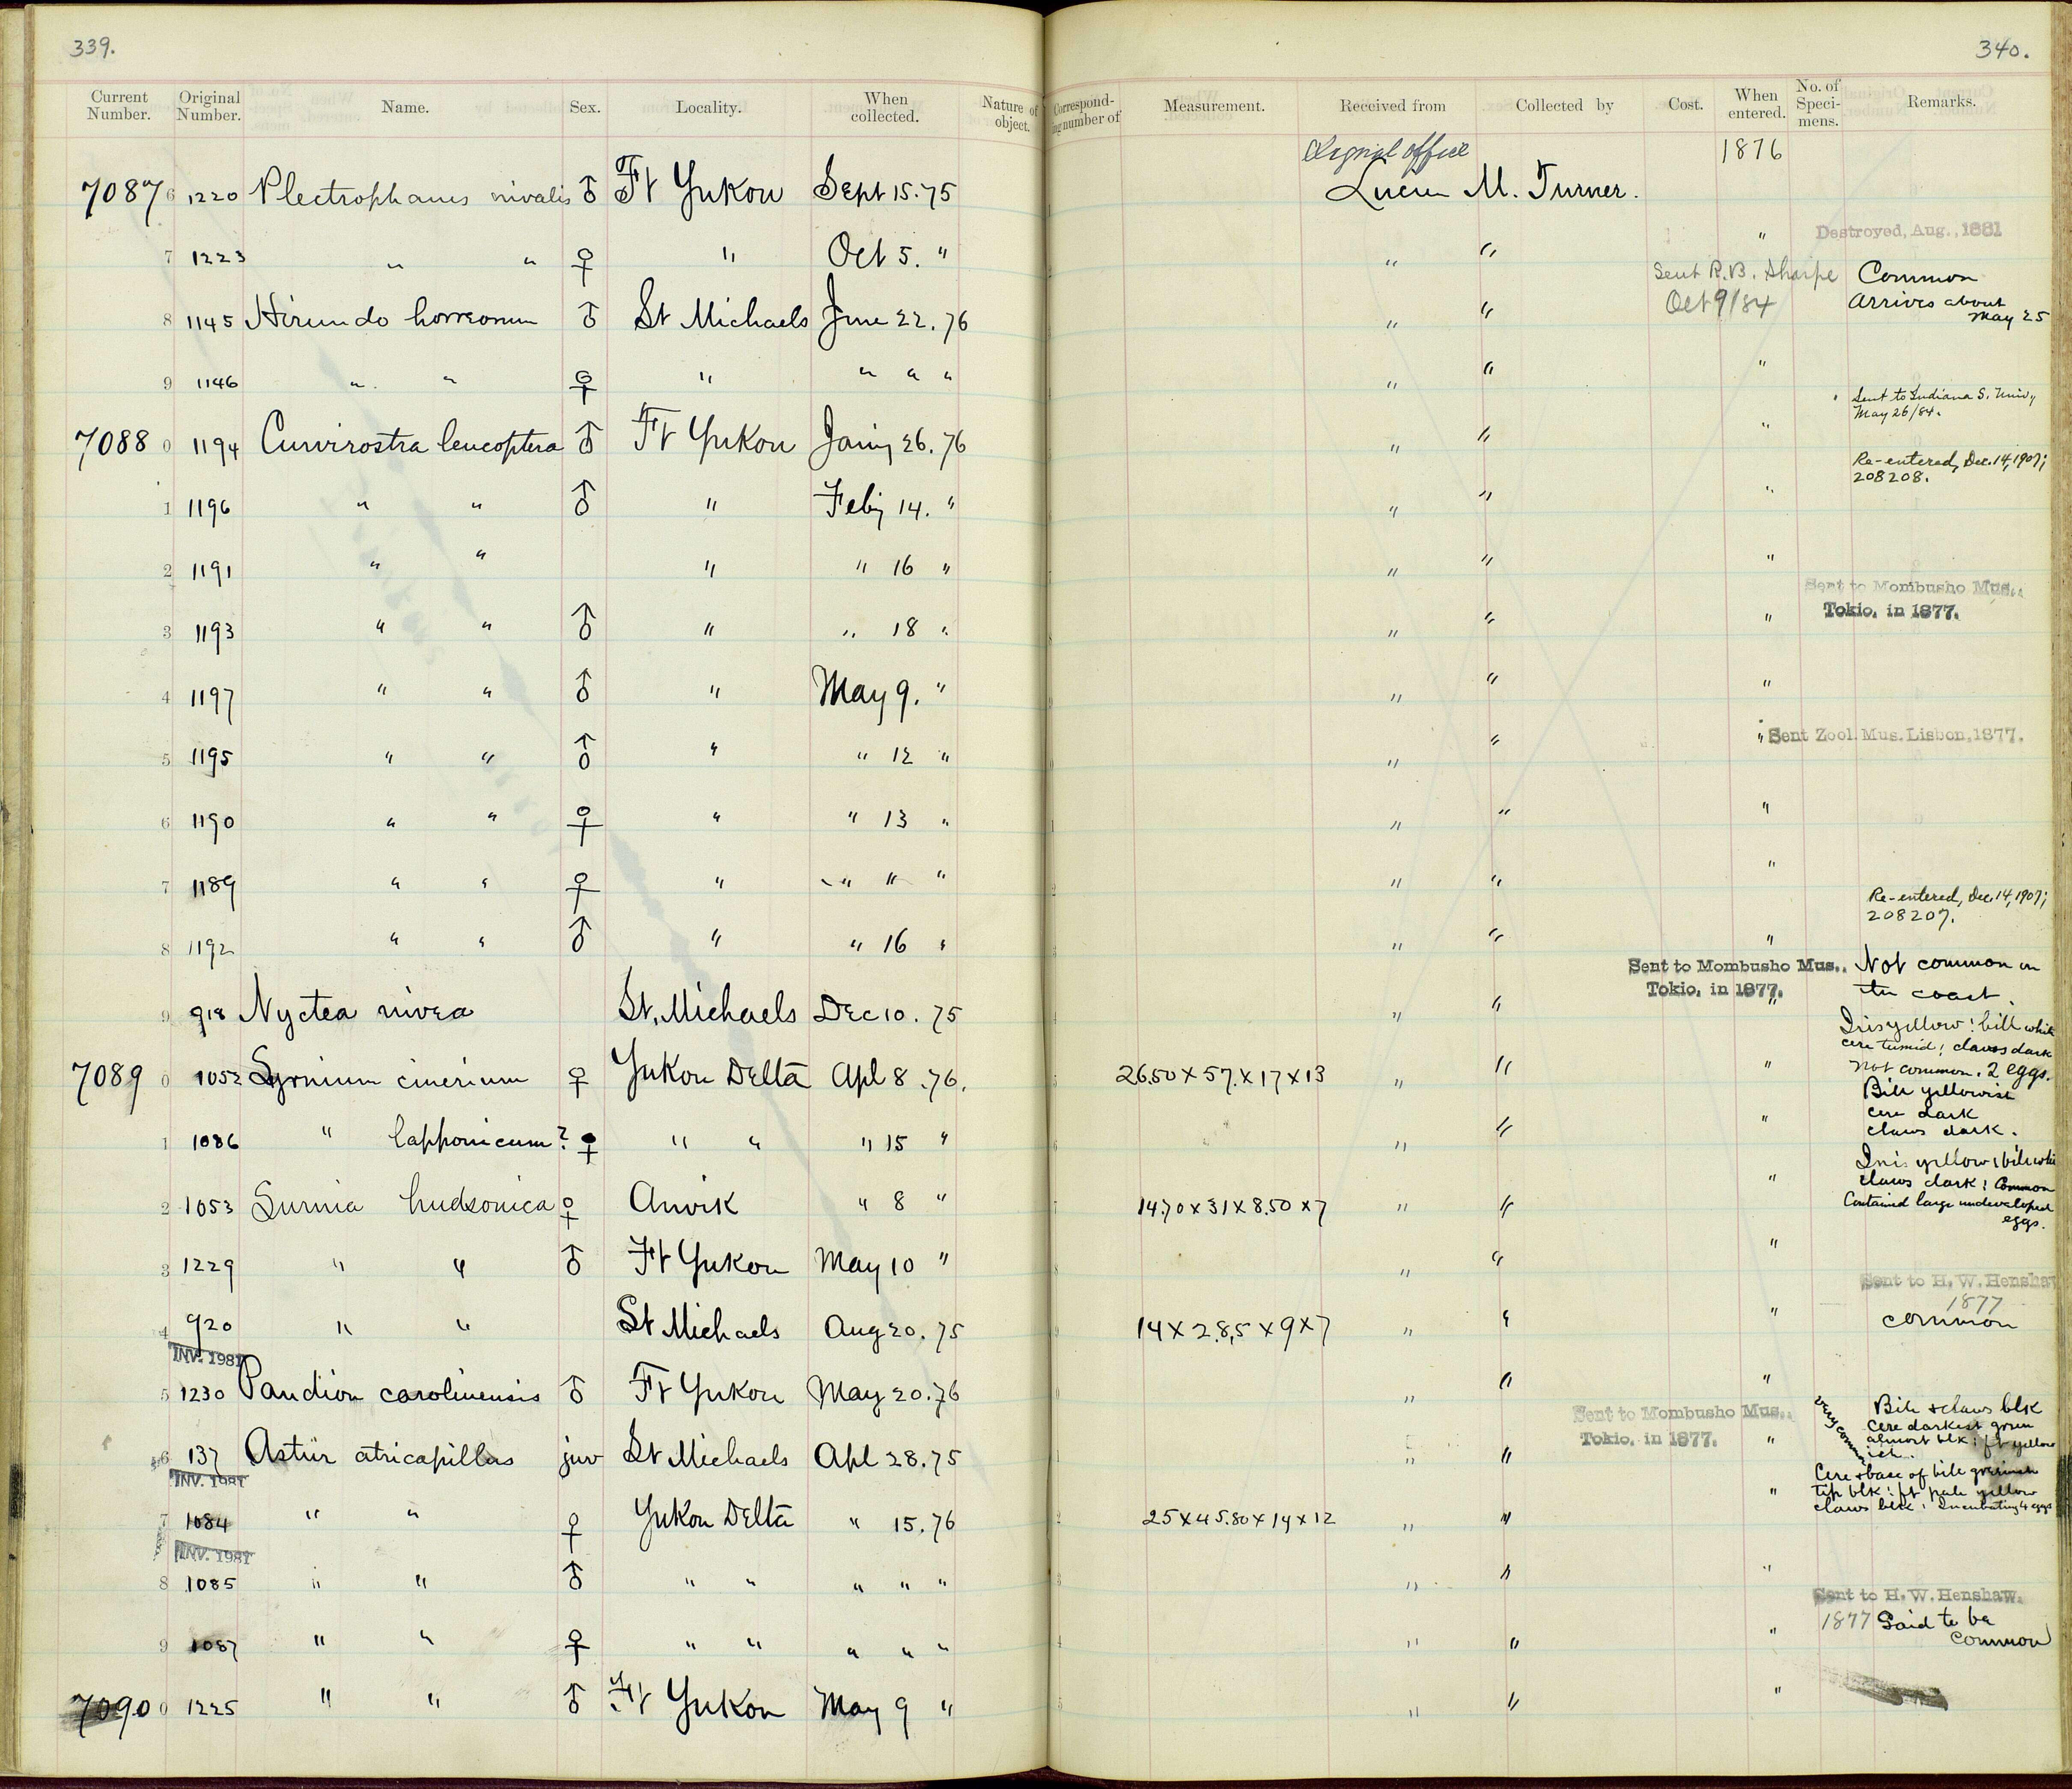 339.
340.
Current Number. Original Number. Name. Sex. Locality. When collected. Nature of object.
Correspond-ing number of Measurement. Received from Collected by Cost. When entered. No. of Speci-mens. Remarks.
Signal office 1876
7087 6 1220 Plectrophanes nivalis ♂ Ft Yukon Sept 15. 75 Lucien M. Turner.
Destroyed, Aug., 1881
7 1223 " " ♀ " Oct 5. " " " "
Sent R. B. Sharpe Oct 9/84
Common
Arrives about
May 25
8 1145 Hirundo horreorum ♂ St Michaels June 22. 76 " "
9 1146 " " ♀ " " " " " " "
Sent to Indiana S. Univ,
May 26/84.
7088 0 1194 Curvirostra leucoptera ♂ Ft Yukon Jany 26. 76 " " "
Re-entered, Dec. 14, 1907;
208208.
1 1196 " " ♂ " Feby 14. " " " "
2 1191 " " " " 16 " " " "
Sent to Mombusho Mus.,
Tokio, in 1877.
3 1193 " " ♂ " " 18 " " " "
4 1197 " " ♂ " May 9. " " " "
5 1195 " " ♂ " " 12 " " " "
Sent Zool. Mus. Lisbon, 1877.
6 1190 " " ♀ " " 13 " " " "
7 1189 " " ♀ " " " " " " "
Re-entered, Dec. 14, 1907;
208207.
8 1192 " " ♂ " " 16 " " " "
Sent to Mombusho Mus.,
Tokio, in 1877.
Not common on
the coast.
9 918 Nyctea nivea St. Michaels Dec 10. 75 " " "
Iris yellow; bill white
cere tumid; claws dark
not common. 2 eggs.
7089 0 1052 Syrnium cinerium ♀ Yukon Delta Apl 8. 76. 26.50 x 57. x 17 x 13 " " "
Bill yellowish
cere dark
claws dark.
1 1086 " lapponicum? ♀ " " " 15 " " " "
Iris yellow; bill whi
claws dark; Common
Contained large undeveloped
eggs.
2 1053 Surnia hudsonica ♀ Anvik " 8 " 14.70 x 31 x 8.50 x 7 " " "
3 1229 " " ♂ Ft Yukon May 10 " " " "
Sent to H. W. Henshaw
1877
common
4 920 " " St Michaels Aug 20. 75 14 x 28.5 x 9 x 7 " " "
INV. 1981
5 1230 Pandion carolinensis ♂ Ft Yukon May 20. 76 " " "
Sent to Mombusho Mus.,
Tokio, in 1877.
very common
Bill & claws blk
Cere darkest green
almost blk; ft yellow
ish.
6 137 Astur atricapillus juv St Michaels Apl 28. 75 " " "
INV. 1981
Cere & base of bill greenish
tip blk; ft pale yellow
claws blk; Incubating 4 eggs
7 1084 " " ♀ Yukon Delta " 15. 76 25 x 45.80 x 14 x 12 " " "
INV. 1981
8 1085 " " ♂ " " " " " " " "
Sent to H. W. Henshaw.
1877 Said to be
common
9 1087 " " ♀ " " " " " " " "
7090 0 1225 " " ♂ Ft Yukon May 9 " " " "